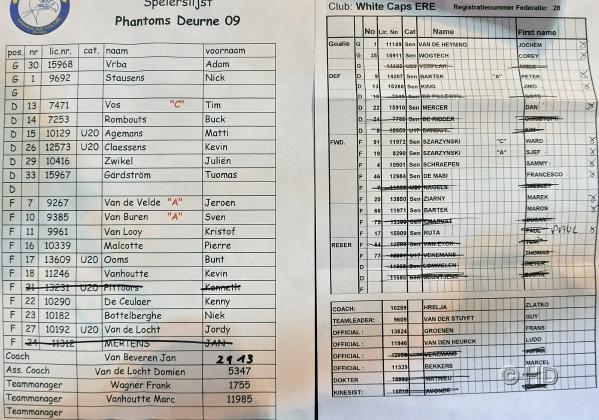 Spelerslijst
Phantoms Deurne 09
pos. nr lic.nr. cat. naam voornaam
G 30 15968 Vrba Adam
G 1 9692 Stausens Nick
G
D 13 7471 Vos "C" Tim
D 14 7253 Rombouts Buck
D 15 10129 U20 Agemans Matti
D 26 12573 U20 Claessens Kevin
D 29 10416 Zwikel Juliën
D 33 15967 Gärdström Tuomas
D
F 7 9267 Van de Velde "A" Jeroen
F 10 9385 Van Buren "A" Sven
F 11 9961 Van Looy Kristof
F 16 10339 Malcotte Pierre
F 17 13609 U20 Ooms Bunt
F 18 11246 Vanhoutte Kevin
F 21 13231 U20 Pittoors Kenneth
F 22 10290 De Culaer Kenny
F 23 10182 Bottelberghe Niek
F 27 10192 U20 Van de Locht Jordy
F 24 11312 MERTENS JAN
Coach Van Beveren Jan 2913
Ass. Coach Van de Locht Domien 5347
Teammanager Wagner Frank 1755
Teammanager Vanhoutte Marc 11985
Teammanager
Club: White Caps ERE Registratienummer Federatie: 28
No Lic Cat Name First name
Goalie G 1 11149 Sen VAN DE HEYNING JOCHEM
G 35 15911 Sen WOGTECH COREY
G Sen VERPLAK
DEF D 9 14207 Sen BARTEK "A" PETER
D 13 15288 Sen KING JINO
D
D 22 15910 Sen MERCER DAN
D Sen DE RIDDER CHRISTOPH
D
FWD. F 91 11272 Sen SZARZYNSKI "C" WARD
F 19 8290 Sen SZARZYNSKI "A" SJEF
F 4 10501 Sen SCHRAEPEN SAMMY
F 46 12984 Sen DE MASI FRANCESCO
F Sen NAGELS WESLEY
F 20 13850 Sen ZIARNY MAREK
F 66 11971 Sen BARTEK MAROS
F Sen
F 17 15909 Sen RUTA PAUL PAUL
RESER F Sen VAN EYCK TOM
F Sen VEKEMANS THOMAS
Sen LOMMELEN DIETER
Sen GEUNTJENS BJORN
COACH: 10259 HRELJA ZLATKO
TEAMLEADER: 9609 VAN DER STUYFT GUY
OFFICIAL : 13824 GROENEN FRANS
OFFICIAL : 11946 VAN DEN HEURCK LUDO
OFFICIAL : VEKEMANS JOHAN
OFFICIAL : 11339 BEKKERS MARCEL
DOKTER MATHIEU
KINESIST:
© HD